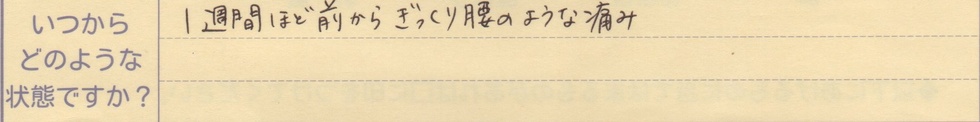 いつから
どのような
状態ですか？
1週間ほど前からぎっくり腰のような痛み